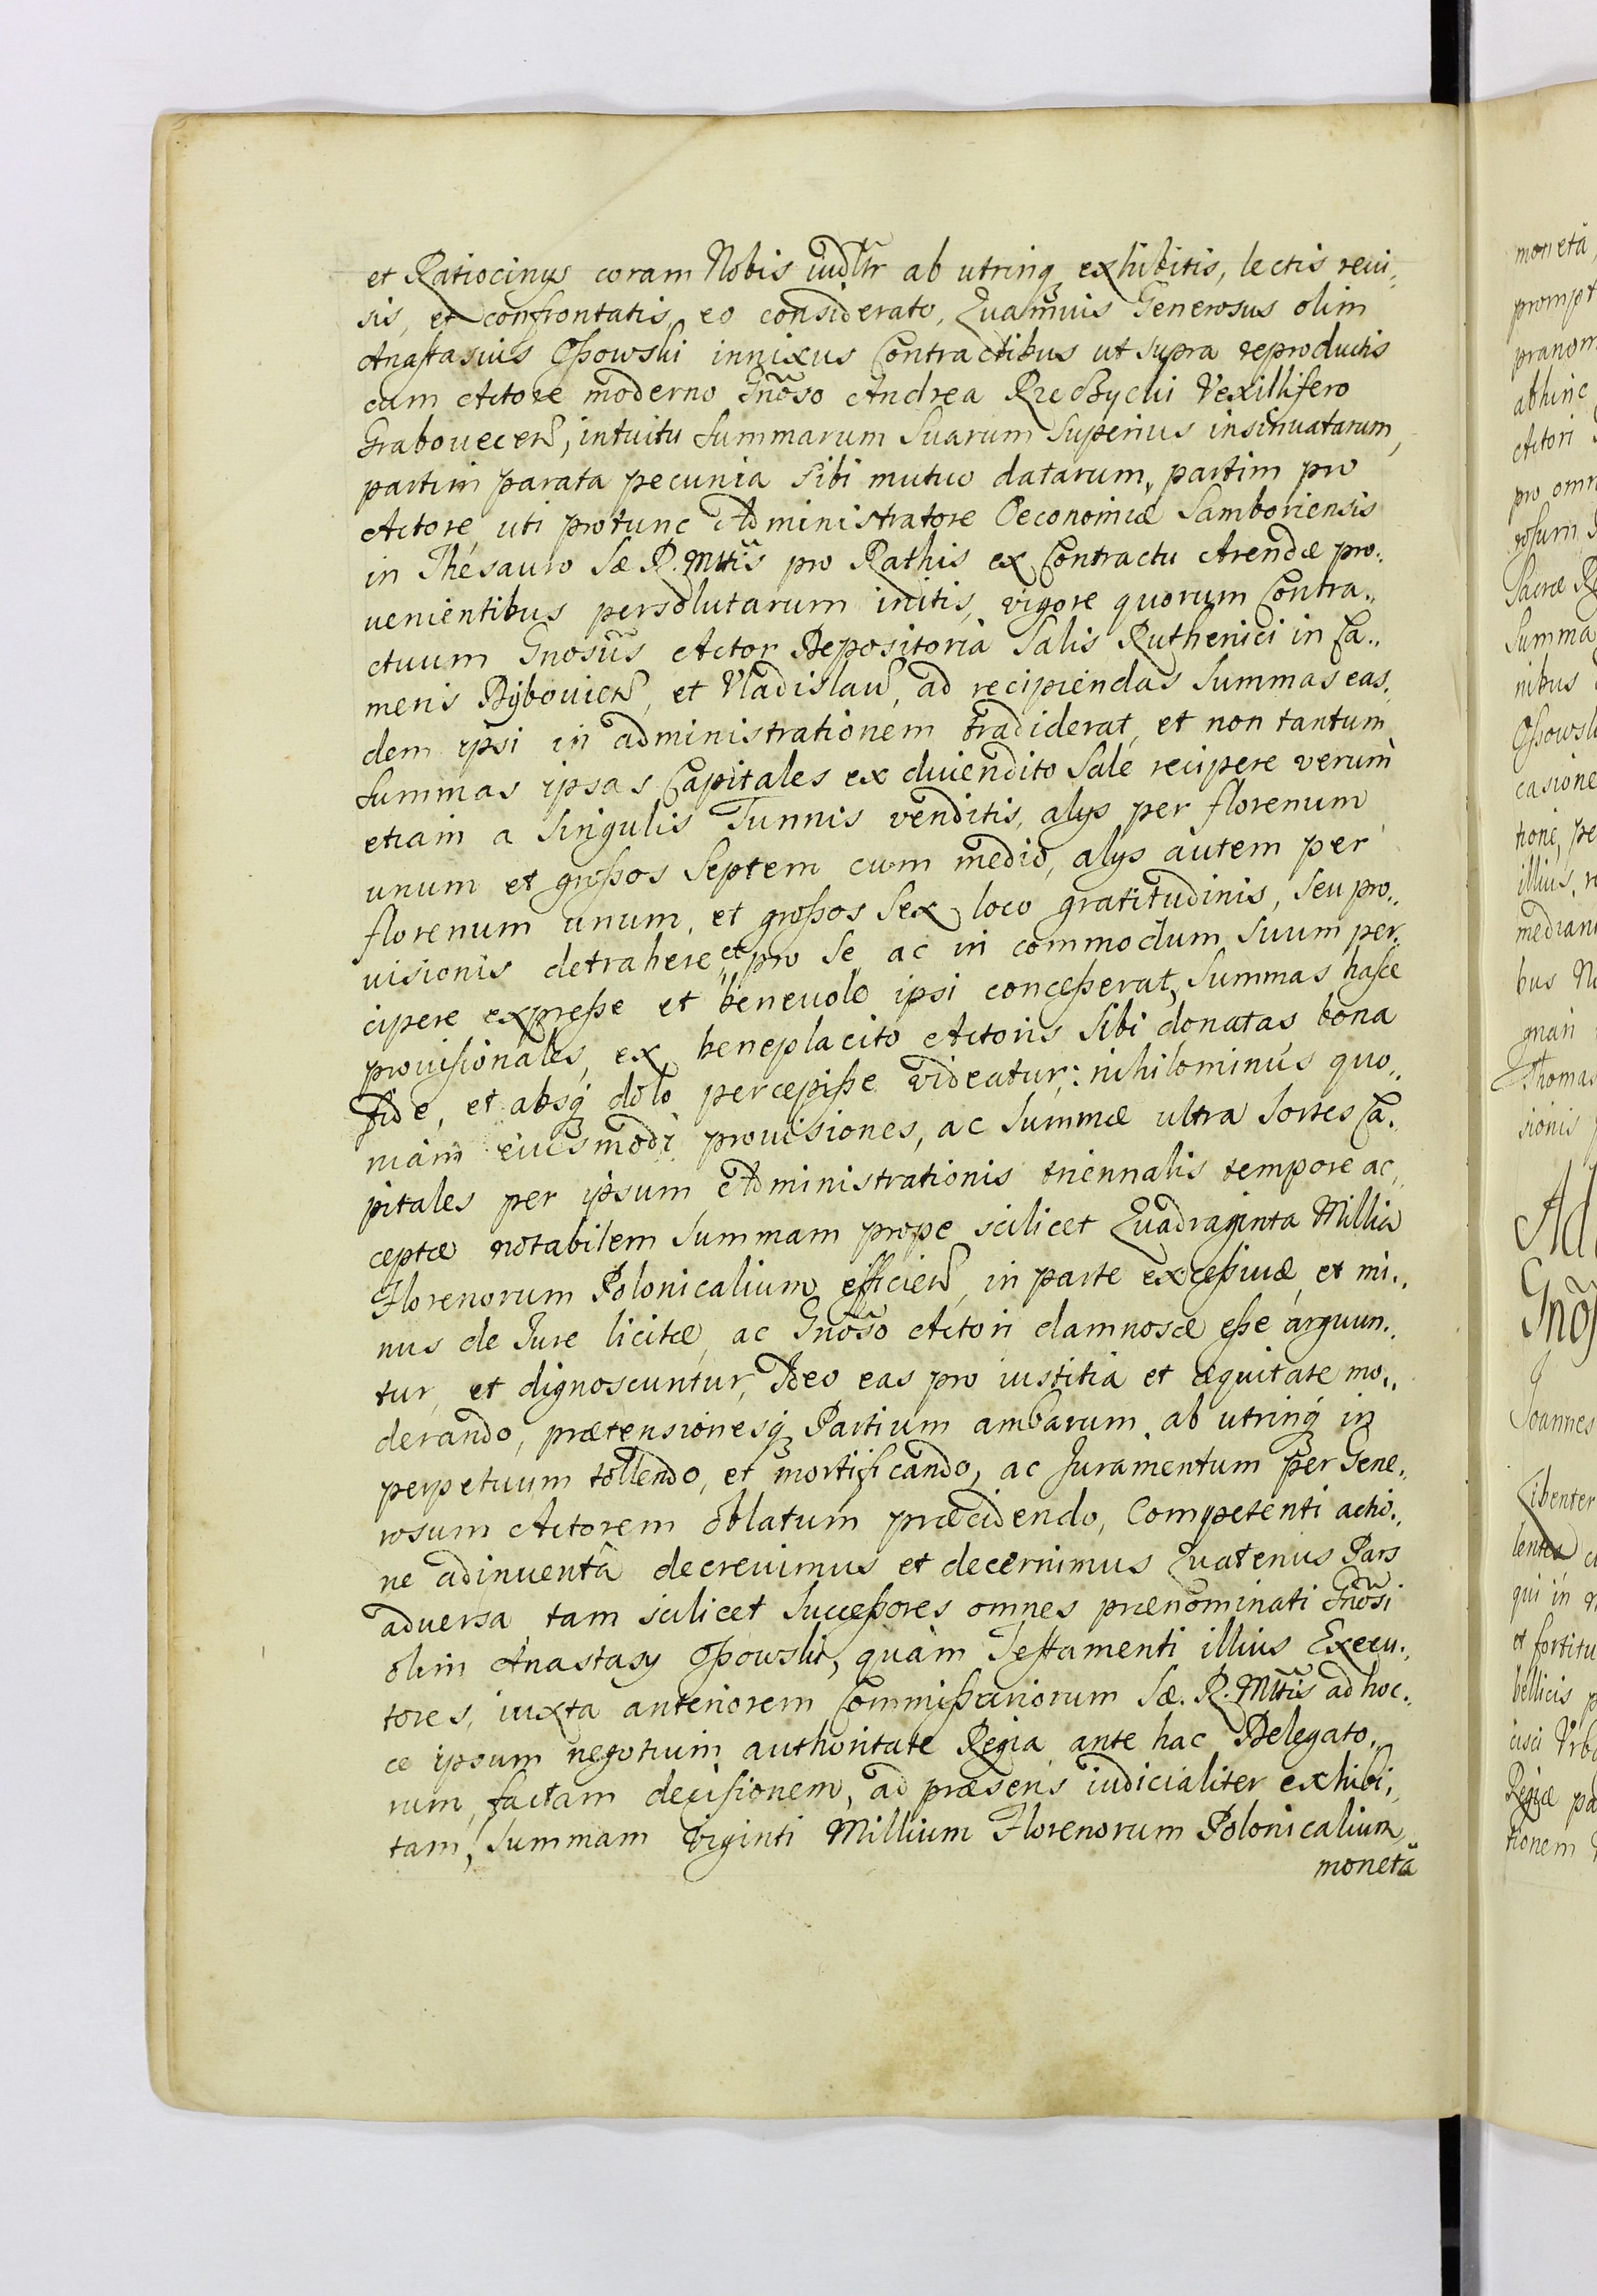 et Ratiocinys coram Nobis iudltr ab utrinq exhibitis, lectis reui„
sis, et confrontatis, eo considerato, Quamuis Generosus olim
Anastasius Oßowski innixus Contractibus ut supra reproductis
cum Actore moderno Gnõso Andrea Rzeczycki Vexillifero
Graboueceñ, intuitu summarum suarum superius insinuatarum,
partim parata pecunia sibi mutuo datarum, partim pro
Actore, uti protunc Administratore Oeconomiæ Samboriensis
in Thesauro Sæ R. Mttis pro Rathis ex Contractu Arendæ pro„
uenientibus persolutarum initis, vigore quorum Contra„
ctuum Gnosus Actor Depositoria Salis Ruthenici in Ca„
meris Bÿbouicñ, et Vladislauñ, ad recipiendas summas eas„
dem ipsi in administrationem tradiderat, et non tantum
summas ipsas Capitales ex diuendito Sale recipere verum
etiam a singulis Tunnis venditis, alys per florenum
unum et großos Septem cum medio, alys autem per
florenum unum, et großos Sex, loco gratitudinis, seu pro„
uisionis detrahere et pro se, ac in commodum suum per„
cipere expreße et beneuole ipsi conceßerat, summas hasce
prouisionales, ex beneplacito Actoris sibi donatas bona
fide, et absq dolo percepiße videatur: nihilominus quo„
niam eiusmodi prouisiones, ac summæ ultra sortes Ca„
pitales per ipsum Administrationis triennalis tempore ac„
ceptæ notabilem summam prope scilicet Quadraginta Millia
Florenorum Polonicalium efficieñ, in parte exceßiuæ, et mi„
nus de Jure licitæ, ac Gnõso Actori damnosæ eße arguun„
tur, et dignoscuntur, Ideo eas pro iustitia et æquitate mo„
derando, prætensionesq Partium ambarum ab utrinq in
perpetuum tollendo, et mortificando, ac Juramentum per Gene„
rosum Actorem oblatum præcidendo, Competenti actio„
ne adinuentâ decreuimus et decernimus Quatenus Pars
aduersa tam scilicet succeßores omnes prænominati Gnõsi
olim Anastasy Oßowski, quàm Testamenti illius Execu„
tores, iuxta anteriorem Commißariorum Sæ. R. Mttis ad hoc„
ce ipsum negotium authoritate Regia ante hac Delegato„
rum, factam decisionem, ad præsens iudicialiter exhibi„
tam, summam Viginti Millium Florenorum Polonicalium,
monetâ